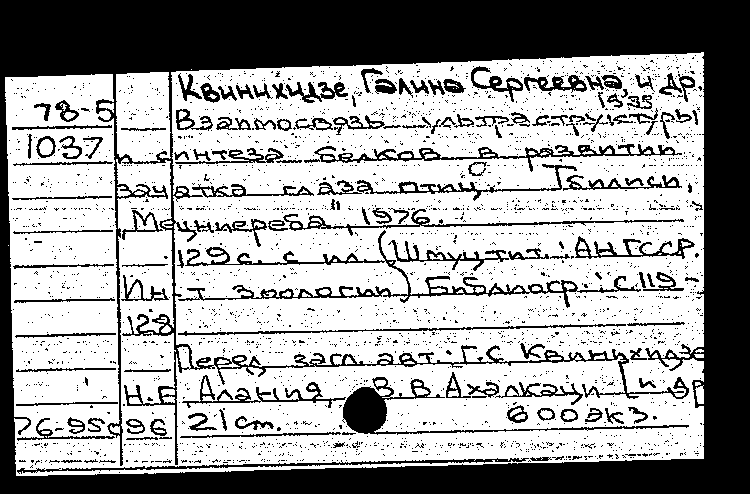 Квинихидзе, Галина Сергеевна, и др.
1935
78-5 Взаимосвязь ультраструктуры
1037 и синтеза белков в развитии
зачатка глаза птиц. Тбилиси,
"Мецниереба", 1976.
129 с. с ил. (Шмуцтит.: АН ГССР.
Ин-т зоологии) Библиогр.: с. 119-
128
Перед загл. авт.: Г.С. Квинихидзе
Н.Е. Алания, В.В. Ахалкаци [и др
76-95096 21 cm. 600 экз.